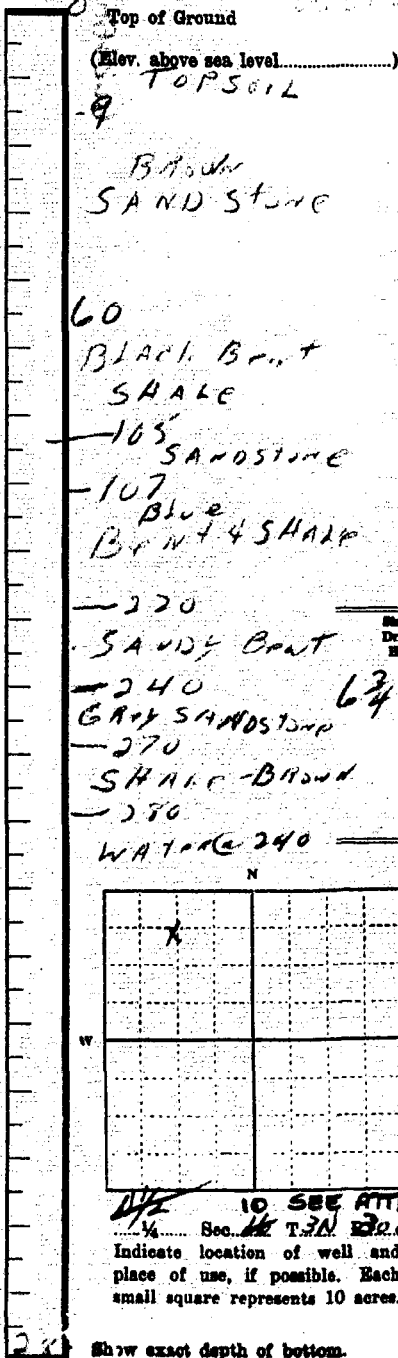 Top of Ground
(Elev. above sea level....................)
TOPSOIL
-9
BROWN
SAND STONE
60
BLACK Bent
SHALE
105
SANDSTONE
107
Blue
BENT & SHALE
220
SANDY BENT
240
6 3/4
GRAY SANDSTONE
270
SHALE-BROWN
280
WATER @ 240
N
X
W
N 1/2 10 SEE ATT
....¼.... Sec. T. 3N R. 30
Indicate location of well and
place of use, if possible. Each
small square represents 10 acres.
Show exact depth of bottom.